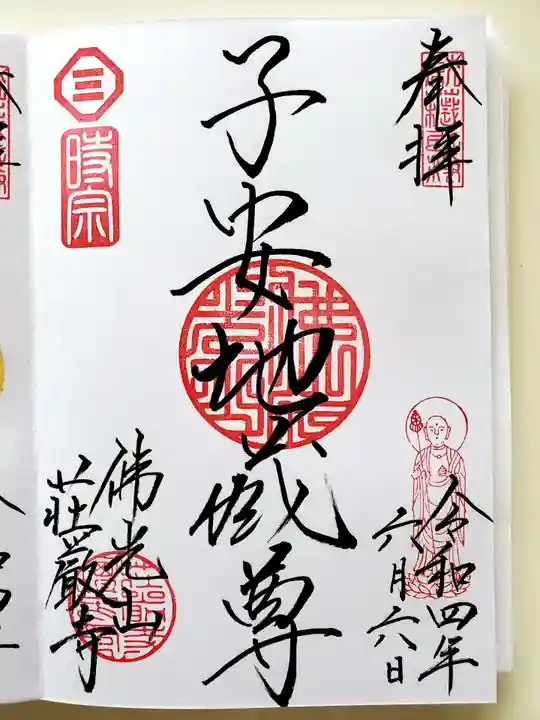 奉拝
令和四年
六月六日
子安地蔵尊
三
時宗
佛光山
荘厳寺